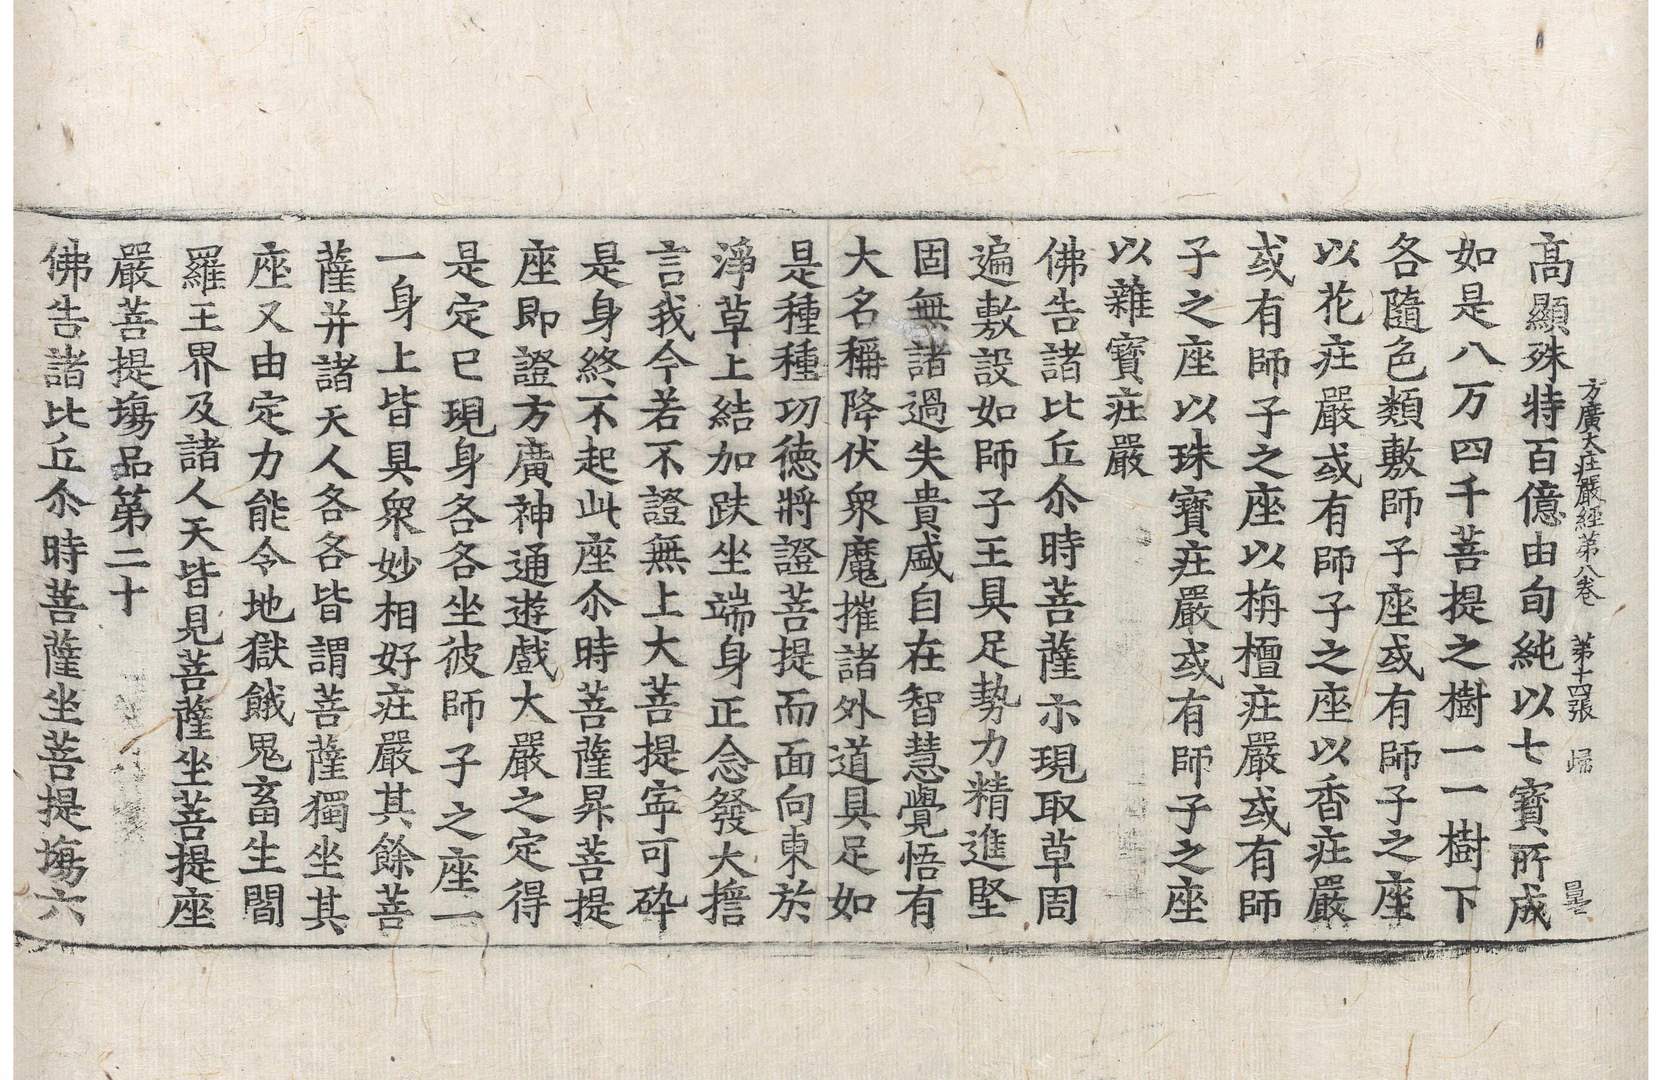 方廣大庄嚴經第八卷 第十四張 歸
高顯殊特百億由旬純以七寶所成
如是八万四千菩提之樹一一樹下
各隨色類敷師子座或有師子之座
以花庄嚴或有師子之座以香庄嚴
或有師子之座以栴檀庄嚴或有師
子之座以珠寶庄嚴或有師子之座
以雜寶庄嚴
佛告諸比丘尒時菩薩示現取草周
遍敷設如師子王具足勢力精進堅
固無諸過失貴盛自在智慧覺悟有
大名稱降伏衆魔摧諸外道具足如
是種種功德將證菩提而面向東於
淨草上結加趺坐端身正念發大擔
言我今若不證無上大菩提寧可碎
是身終不起此座尒時菩薩昇菩提
座即證方廣神通遊戲大嚴之定得
是定已現身各各坐彼師子之座一
一身上皆具衆妙相好庄嚴其餘菩
薩并諸天人各各皆謂菩薩獨坐其
座又由定力能令地獄餓鬼畜生閻
羅王界及諸人天皆見菩薩坐菩提座
嚴菩提塲品第二十
佛告諸比丘尒時菩薩坐菩提塲六